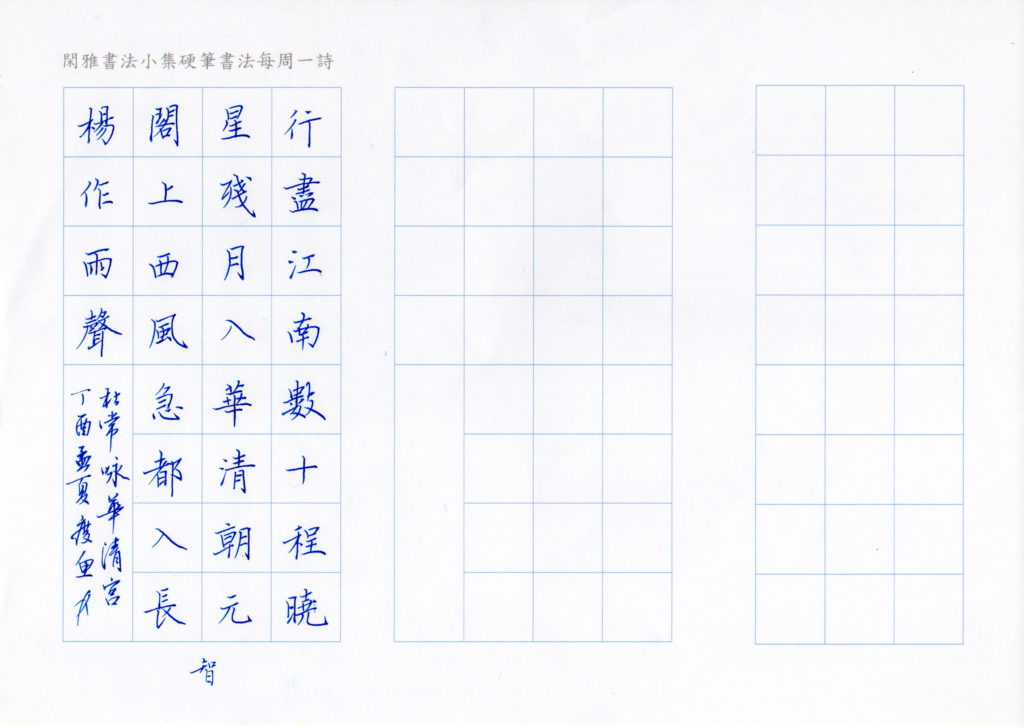 閑雅書法小集硬筆書法每周一詩
行盡江南數十程曉
星殘月入華清朝元
閣上西風急都入長
楊作雨聲
杜常咏華清宮
丁酉孟夏
智